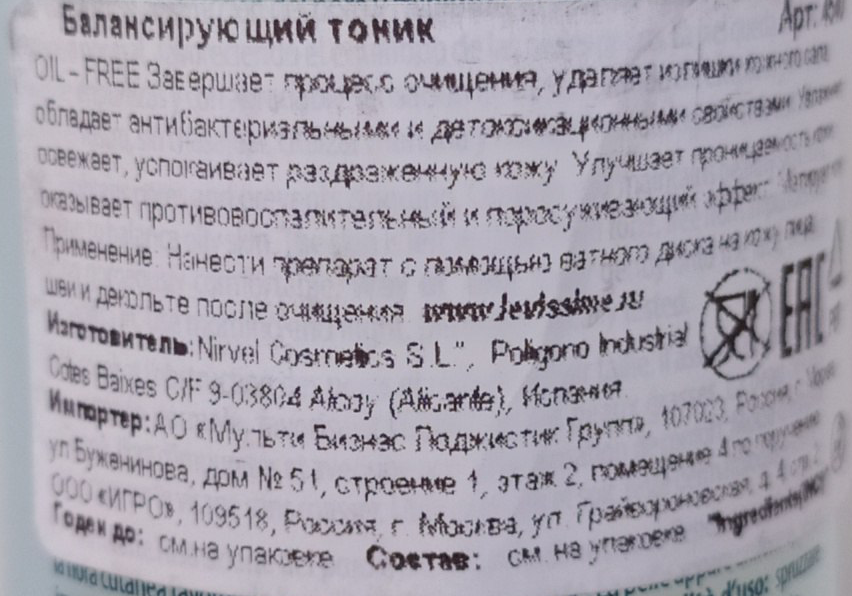 Балансирующий тоник Арт.
OIL - FREE Завершает процесс очищения, удаляет излишки кожного сала,
обладает антибактериальными и детоксикационными свойствами. Увлажняет
освежает, успокаивает раздраженную кожу. Улучшает проницаемость кожи
оказывает противовоспалительный и поросуживающий эффект.
Применение: Нанести препарат с помощью ватного диска на кожу лица,
шеи и декольте после очищения. www.levissime.ru
EAC
Изготовитель: Nirvel Cosmetics S.L.", Poligono Industrial
Cotes Baixes C/F 9-03804 Alcoy (Alicante), Испания.
Импортер: АО «Мульти Бизнес Лоджистик Групп», 107023, Россия, г.
ул Буженинова, дом № 51, строение 1, этаж 2, помещение 4 по поручению
ООО «ИГРО», 109518, Россия, г. Москва, ул. Грайвороновская, д. 4
Годен до: см.на упаковке Состав: см. на упаковке "Ingredients
d'uso: